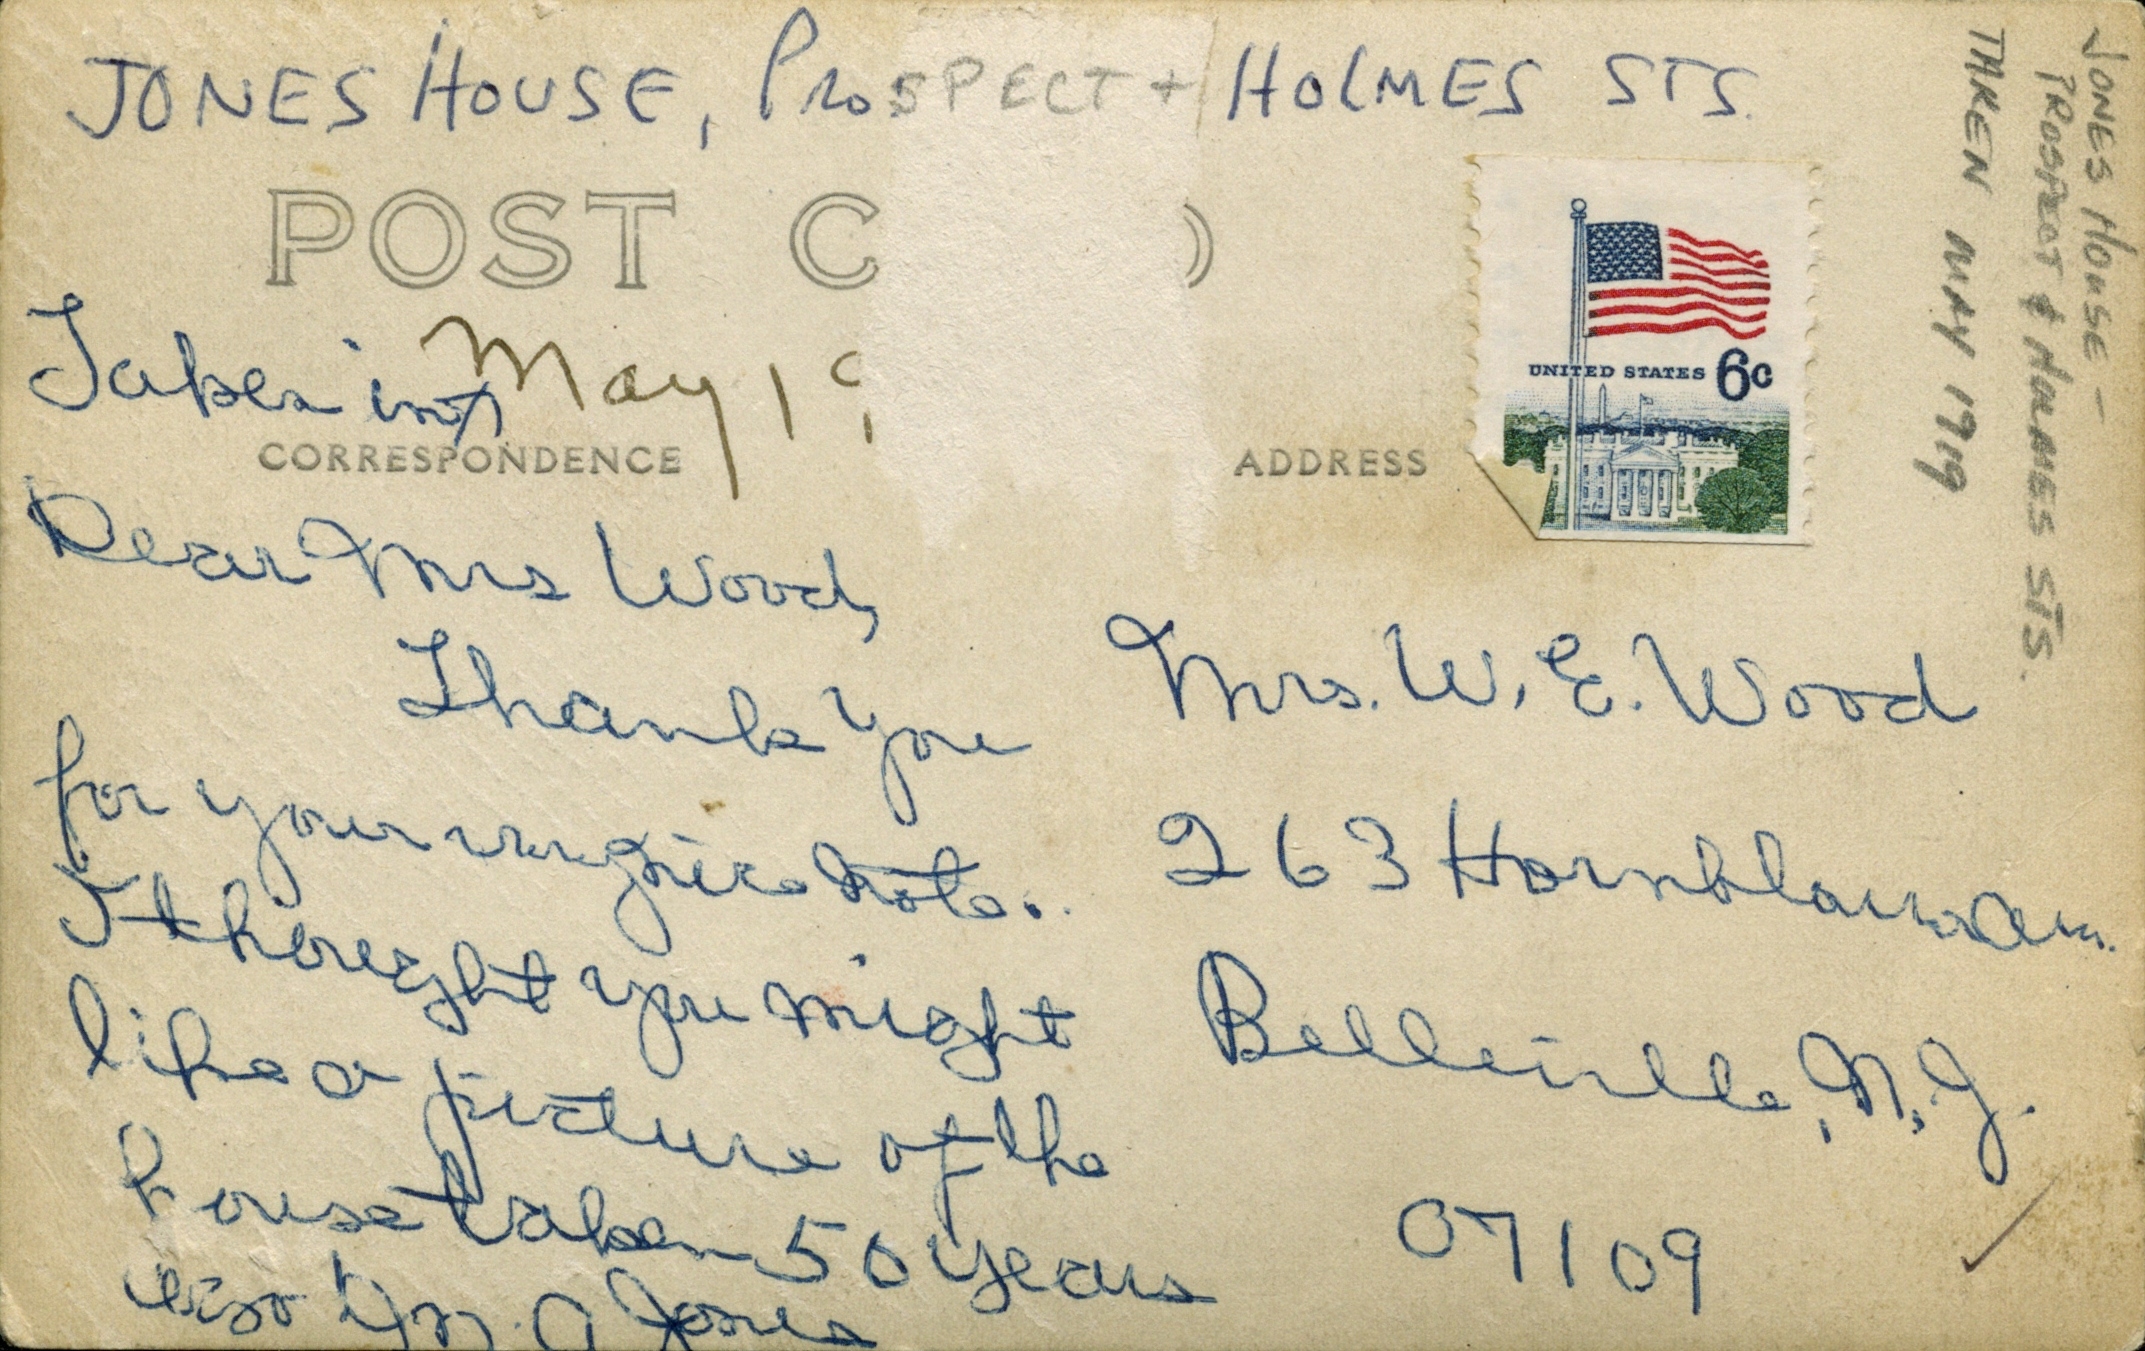 JONES HOUSE, PROSPECT + HOLMES STS.
POST C D
Taken in May 19
CORRESPONDENCE
ADDRESS
UNITED STATES 6c
Dear Mrs Wood,
Thank you
for your very nice note.
I thought you might
like a picture of the
house taken 50 years
ago M. A Jones
Mrs. W. E. Wood
263 Hornblower Ave.
Belleville, N.J.
07109
JONES HOUSE -
PROSPECT & HOLMES STS.
TAKEN MAY 1919